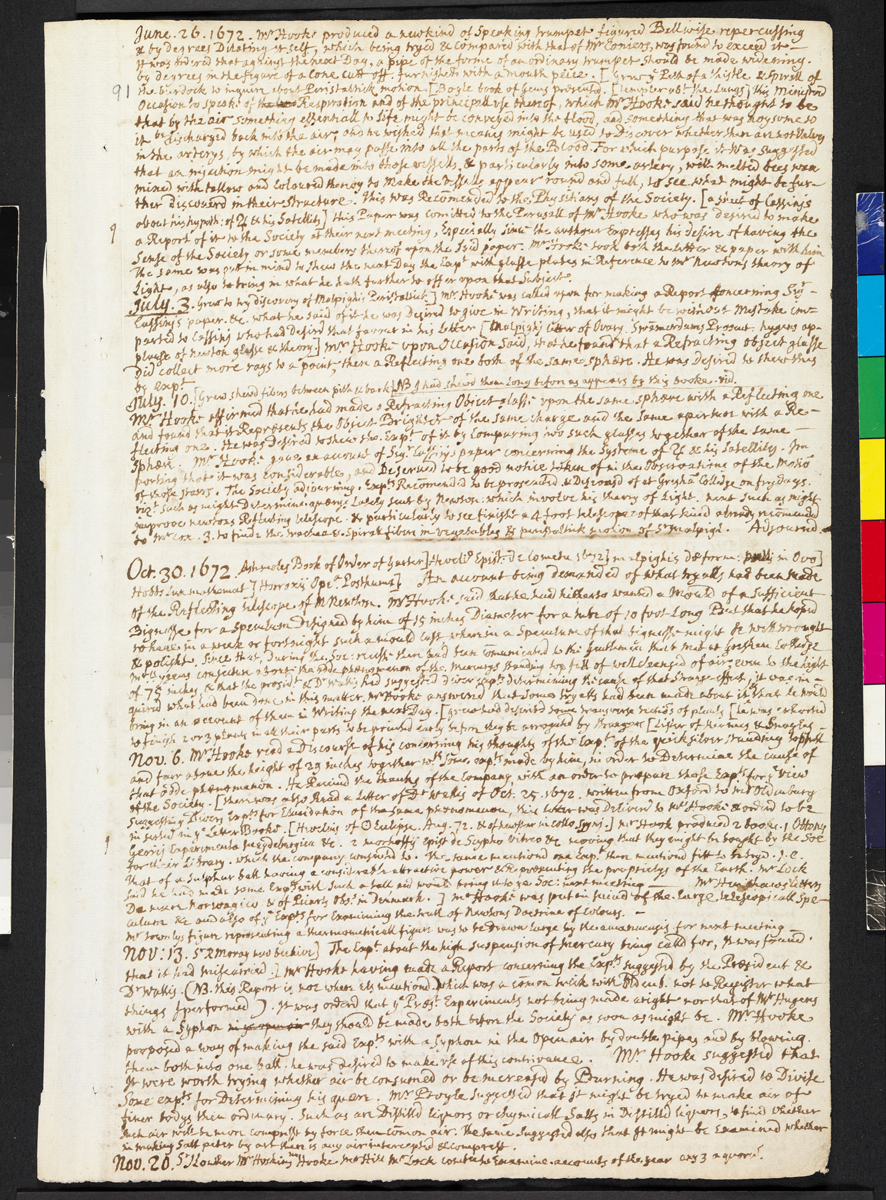 June. 26. 1672. Mr Hooke produced a new kind of Speaking trumpet figured Bellwise repercussing
& by degrees Dilating it self, which being tryed & compared with that of Mr Coniers, was found to exceed it
It was ordered that against the next Day, a pipe of the forme of an ordinary trumpet should be made widening
by degrees in the figure of a Cone cutt off. furnished with a mouth peice. [Grews Path of a thistle & Spirall of
91
the burdock to inquire about Peristaltick motion. [Boyle book of Gems presented. [Templer obs. the Lungs] this Ministred
Occasion to speake of the Respiration and of the principall use thereof, which Mr Hooke said he thought to be
that by the air something essentiall to Life might be conveyed into the blood, and something that was noysome to
it be discharged back into the air, and he wished that meanes might be used to Discover whether there are not Valves
in the arterys, by which the air may passe into all the parts of the Blood. For which purpose it Was suggested
that an injection might be made into those vessells, & particularly into some artery, with melted bees wax
mixed with tallow and coloured therby to make the vessells appear round and full, to see what might be fur-
ther discoverd in their structure. This was Recomended to the Physitians of the Society. [a sheet of Cassinys
about his hypoth: of ♃ & his Satellits] this Paper was comitted to the Perusall of Mr Hooke who was desired to make
9
a Report of it to the Society at their next meeting, Especially since the authour Expresses his desire of having the
Sense of the Society or some members thereof upon the said paper. Mr Hooke took both the letter & paper with him
The same was put in mind to shew the next Day the Expt with glasse plates in Reference to Mr Newtons theory of
Light, as also to bring in what he hath further to offer upon that Subject.
July. 3. Grew to my discovery of Malpighi: Peristaltick] Mr Hooke was called upon for making a Report concerning Sigr
Cassinys paper. &c. what he said of it he was Desired to give in Writing, that it might be without Mistake im-
parted to Cassiny who had Desired that favour in his letter [Malpighi's letter of Ovary. Swammerdams Present. hugens ap-
plause of newton glasse & theory] Mr Hooke upon Occasion Said, that he found that a Refracting object glasse
Did collect more rays to a point, then a Reflecting one both of the same sphære. He was Desired to shew this
by Expt.
July. 10. [Grew shewd fibers between pith & bark] NB I had shewd them Long before as appears by this booke. vid.
Mr Hooke affirmed that he had made a Refracting Object-glasse upon the same sphære with a Reflecting one
and found that it Represents the Object Brighter of the same charge and the same aperture with a Re-
flecting one. He was Desired to shew the Expt of it by Comparing two such glasses together of the same
Sphær. Mr. Hooke gave an account of Sigr Cassinys paper concerning the Systeme of ♃ & his Satellits. Im-
porting that it was Considerable, and Deserved to be good notice taken of in the Observations of the Motion
of those stars. The Society adjourning. Expts Recomended to be prosecuted & Discoursd of at Gresham Colledge on frydays.
vizt. such as might Determin querys Lately sent by Newton. which involve his theory of Light. next such as might
improve newtons Reflecting telescope. & particularly to see finisht a 4 foot telescope of that kind already recomended
to Mr Cox. 3. to find the tracheas & Spirall fibers in vegetables & peristaltick motion of Sr Malpigi. Adjourned.
Oct. 30. 1672. Ashmoles Book of Order of Garter] Hevelij Epist. De Cometa 1672] malpighis de form: pulli in Ovo]
Hobbs Lux mathemat] Horroxij Opera Posthuma] An account being demanded of what tryalls had been made
of the Reflecting telescope of Mr Newton. Mr Hooke said that he had hitherto wanted a Mould of a sufficient
Bignesse for a Speculum designed by him of 15 inches Diameter for a tube of 10 foot Long But that he hoped
to have in a week or fortnight such a mould cast wherin a Speculum of that bignesse might be well wrought
& polisht. Since that, During the Soc: recesse there had been comunicated to the Gentlemen that met at Gresham Colledge
Mr Hugens conjecture about the odd phenomenon of the Mercurys standing top full of well cleansed of air, even to the hight
of 75 inches, & that the presidt & Dr Wallis had suggested divers Expts determining the cause of that strange effect, it was in-
quired what had been done in this matter. Mr Hooke answered that some tryalls had been made about it & that he would
bring in an account of them in Writing the next Day. [Grew had described some transverse sections of plants [he was exhorted
to finish 2 or 3 plants in all their parts to be printed early before they be arrogated by strangers [Lister of Kermes &
Nov. 6. Mr Hooke read a Discourse of his concerning his thoughts of the Expt of the quicksilver standing topfull
and farr above the height of 29 inches together with some expts made by him, in order to Determine the cause of
that odde phenomenon. He Receivd the thanks of the Company, with an order to prepare those Expts for ye View
of the Society. [there was also Read a letter of Dr Wallis of Oct. 25. 1672. written from Oxford to Mr Oldenburg
suggesting Divers Expts for Elucidation of the same phenomenon, this letter was deliverd to Mr Hooke & orderd to be
inserted in ye letter Booke. [Hevelius of ☉ Eclipse. Aug. 72. & of new star in collo Cygni.] Mr Hooke produced 2 books. 1 Ottonis
Gerici Experimenta magdeburgica &c. 2 morhoffij epist de Scypho vitreo &c moving that they might be bought by the Soc
for their Library. which the company consented to. The same mentioned one Expt there mentiond fitt to be tryd. i.e.
That of a Sulphur ball having a considerable attractive power & Representing the propertys of the Earth. Mr Lock
said he had made some Expts with such a ball and would bring it to ye Soc: next meeting ___ Mr hershaws letters
De mari Norwagico & of Picarts obs. in Denmark.] Mr Hooke was put in mind of the Large telescopicall Spe-
culum &c and also of ye Expts for Examining the truth of Newtons Doctrine of Colours. —
Mr townlys figure representing a thermometricall figure was to be drawn large by the amanuensis for next meeting
Nov: 13. Sr R Moray two behive] The Expt about the high suspension of mercury being calld for, It was found
that it had miscarried.] Mr Hooke having made a Report concerning the Expts suggested by the President &
Dr Wallis. (NB. this Report is not where else mentiond) which was a comon trick with Oldenb. not to Register what
things I performed). It was orderd that ye Præst Experiments not being made aright nor that of Mr Hugens
with a syphon they should be made both before the Society as soon as might be. Mr. Hooke
proposed a way of making the said Expt with a syphon in the open air by double pipes and by blowing
them both into one ball. he was desired to make use of this contrivance. Mr Hooke suggested that
It were worth trying whether air be consumed or be increased by Burning. He was desired to Devise
Some expts for Determining his quere. Mr Boyle suggested that it might be tryed to make air of
finer bodys then ordinary. Such as are Distilld liquors or chymicall Salts in Distilled liquors, to find whether
such air will be more compresst by force then Comon air. The same Suggested also that It might be Examined whether
in making Salt peter by art there is any air intercepted & comprest.
Nov. 20. Sr J Lowther Mr Hoskins Mr Hooke Mr Hill Mr Lock comittee to Examine accounts of the year any 3 a quor.